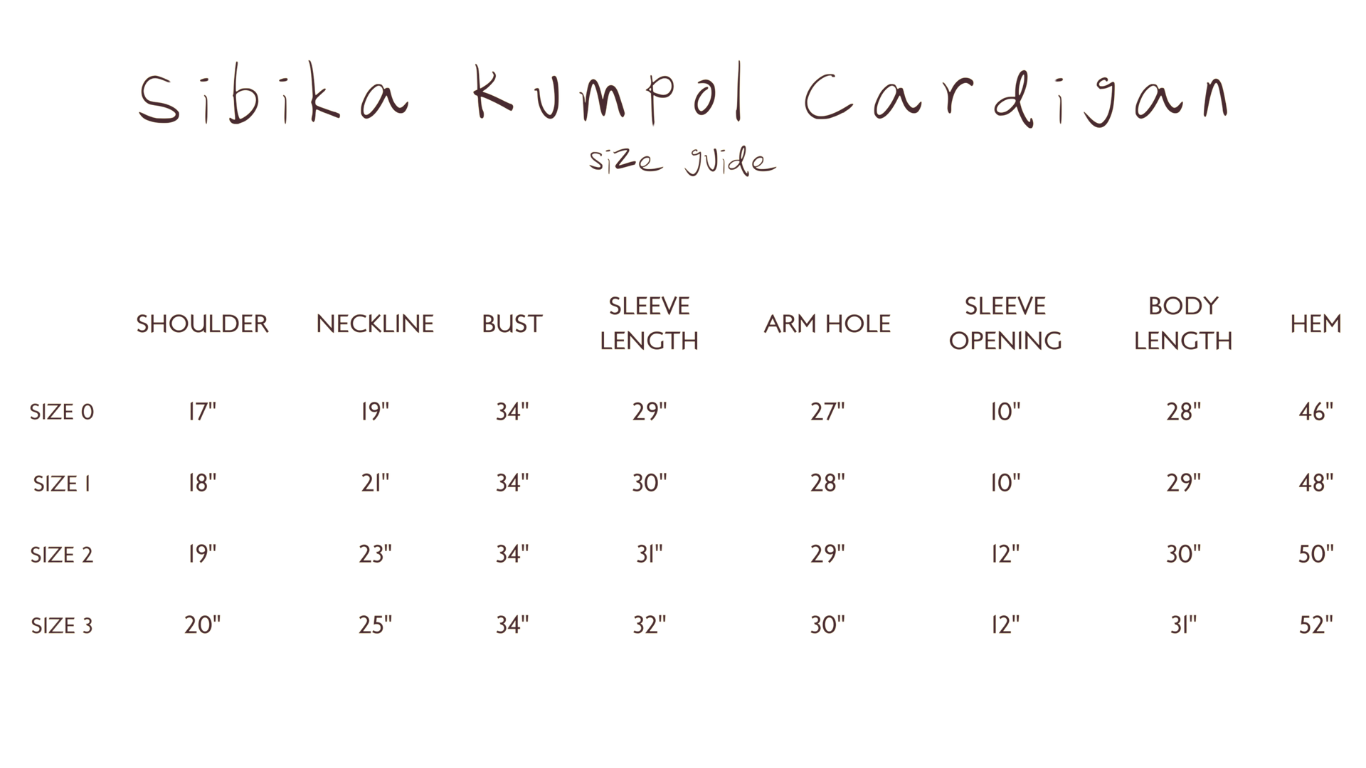 Sibika Kumpol Cardigan
size guide
SHOULDER NECKLINE BUST SLEEVE LENGTH ARM HOLE SLEEVE OPENING BODY LENGTH HEM
SIZE 0 17" 19" 34" 29" 27" 10" 28" 46"
SIZE 1 18" 21" 34" 30" 28" 10" 29" 48"
SIZE 2 19" 23" 34" 31" 29" 12" 30" 50"
SIZE 3 20" 25" 34" 32" 30" 12" 31" 52"